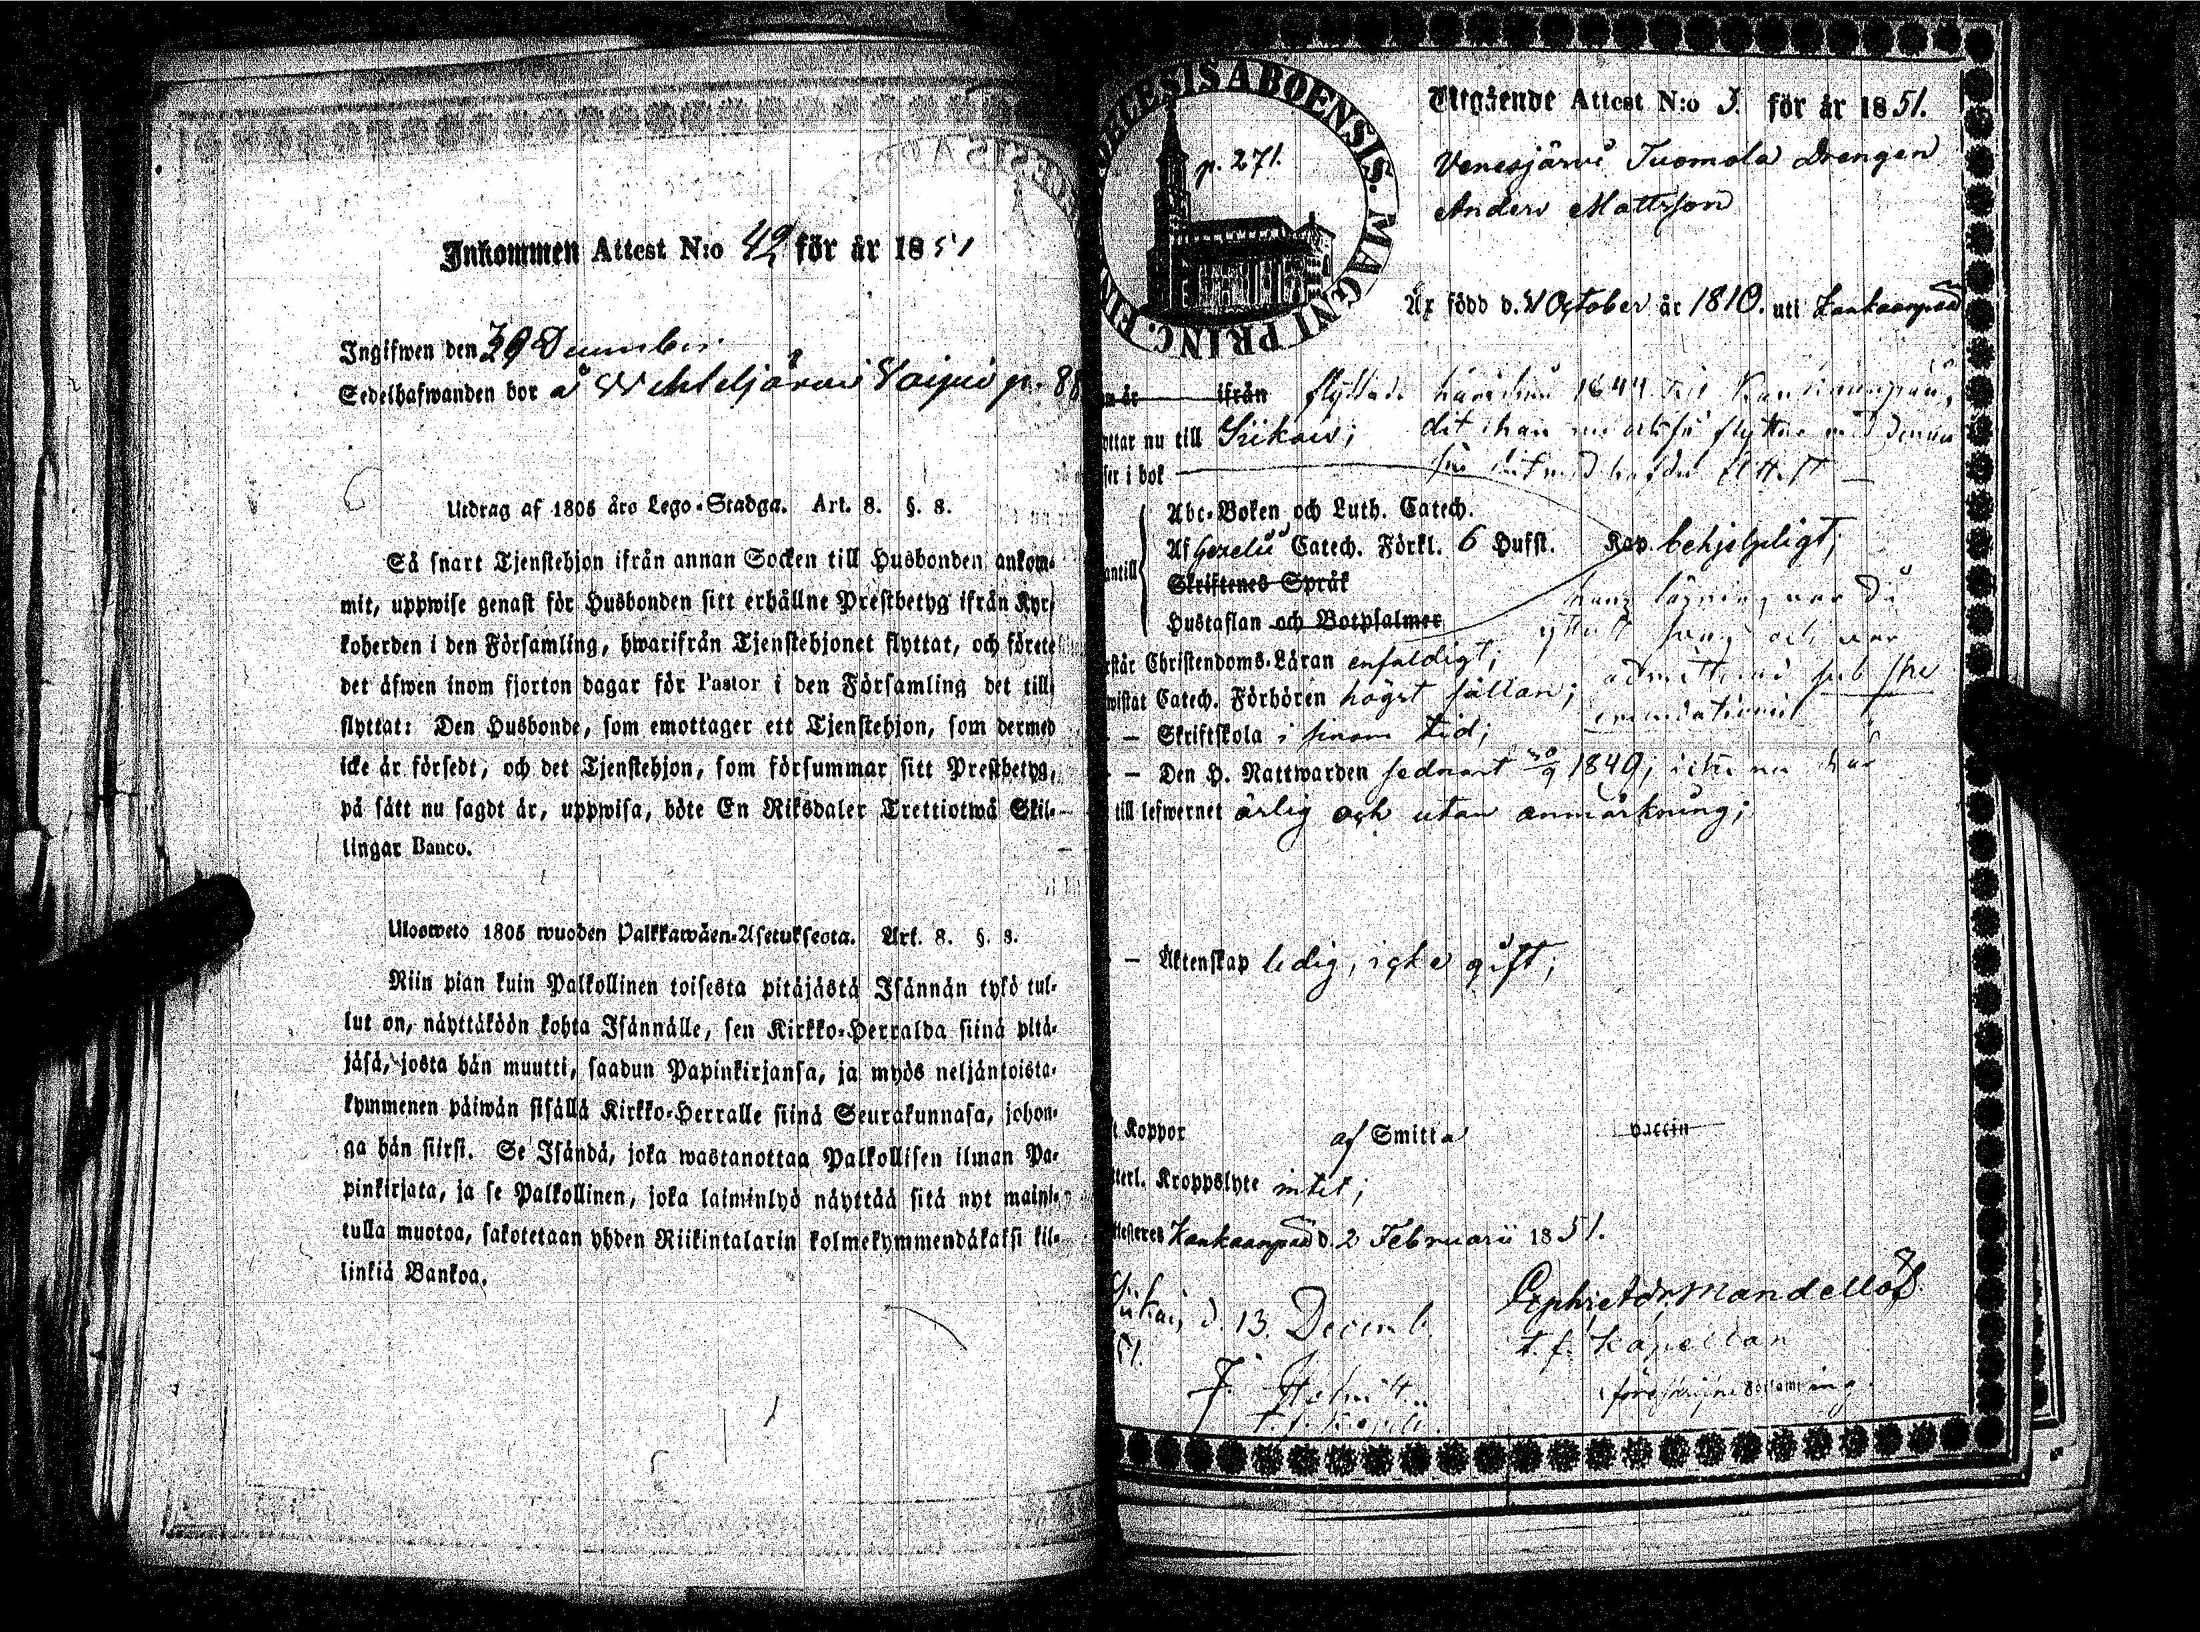 Inkommen Attest N:o 42 för år 1851
Ingifwen den 30 December
Sedelhafwanden bor å p. 88
Utdrag af 1805 års Lego-Stadga. Art. 8. §. 8.
Så snart Tjenstehjon ifrån annan Socken till Husbonden ankom-
mit, uppwise genast för Husbonden sitt erhållne Prestbetyg ifrån Kyr-
koherden i den Församling, hwarifrån Tjenstehjonet flyttat, och förete
det äfwen inom fjorton dagar för Pastor i den Församling det till-
flyttat: Den Husbonde, som emottager ett Tjenstehjon, som dermed
icke är försedt, och det Tjenstehjon, som försummar sitt Prestbetyg,
på sätt nu sagdt är, uppwisa, böte En Riksdaler Trettiotwå Skil-
lingar Banco.
Ulosweto 1805 wuoden Palkkawäen-Asetuksesta. Art. 8. §. 8.
Niin pian kuin Palkollinen toisesta pitäjästä Isännän tykö tul-
lut on, näyttäköön kohta Isännälle, sen Kirkko-Herralda siinä pitä-
jäsä, josta hän muutti, saadun Papinkirjansa, ja myös neljäntoista-
kymmenen päiwän sisällä Kirkko-Herralle siinä Seurakunnasa, johon-
ga hän siirsi. Se Isändä, joka wastanottaa Palkollisen ilman Pa-
pinkirjata, ja se Palkollinen, joka laiminlyö näyttää sitä nyt maini-
tulla muotoa, sakotetaan yhden Riikintalarin kolmekymmendäkaksi kil-
linkiä Bankoa.
ECESIS ABOENSIS. MAGNI PRINC. FIN
p. 271.
Utgående Attest N:o 3. för år 1851.
Venesjärvi Tuomola Drengen
Anders Mattsson
Är född d. October år 1810. uti Kankaanpää
om år ifrån flyttade 1844 Kankaanpää,
yttar nu till Siikais; dit han flyttar med denna
ser i bok
Abc-Boken och Luth. Catech.
antill Af Gezelii Catech. Förkl. 6 Hufst. Kap. behjelpligt;
Skriftenes Språk
Hustaflan och Botpsalmer
rstår Christendoms-Läran enfaldigt;
wistat Catech. Förhören högst sällan;
— Skriftskola i sinom tid;
— Den H. Nattwarden sednast 1849;
till lefwernet ärlig och utan anmärkning;
— Äktenskap ledig, icke gift;
t Koppor af Smitta vaccin
terl. Kroppslyte intet;
ttesteres Kankaanpää d. 2 Februarii 1851.
Siikais d. 13. Decemb. Mandellöf.
51. t. f. Kapellan
J.